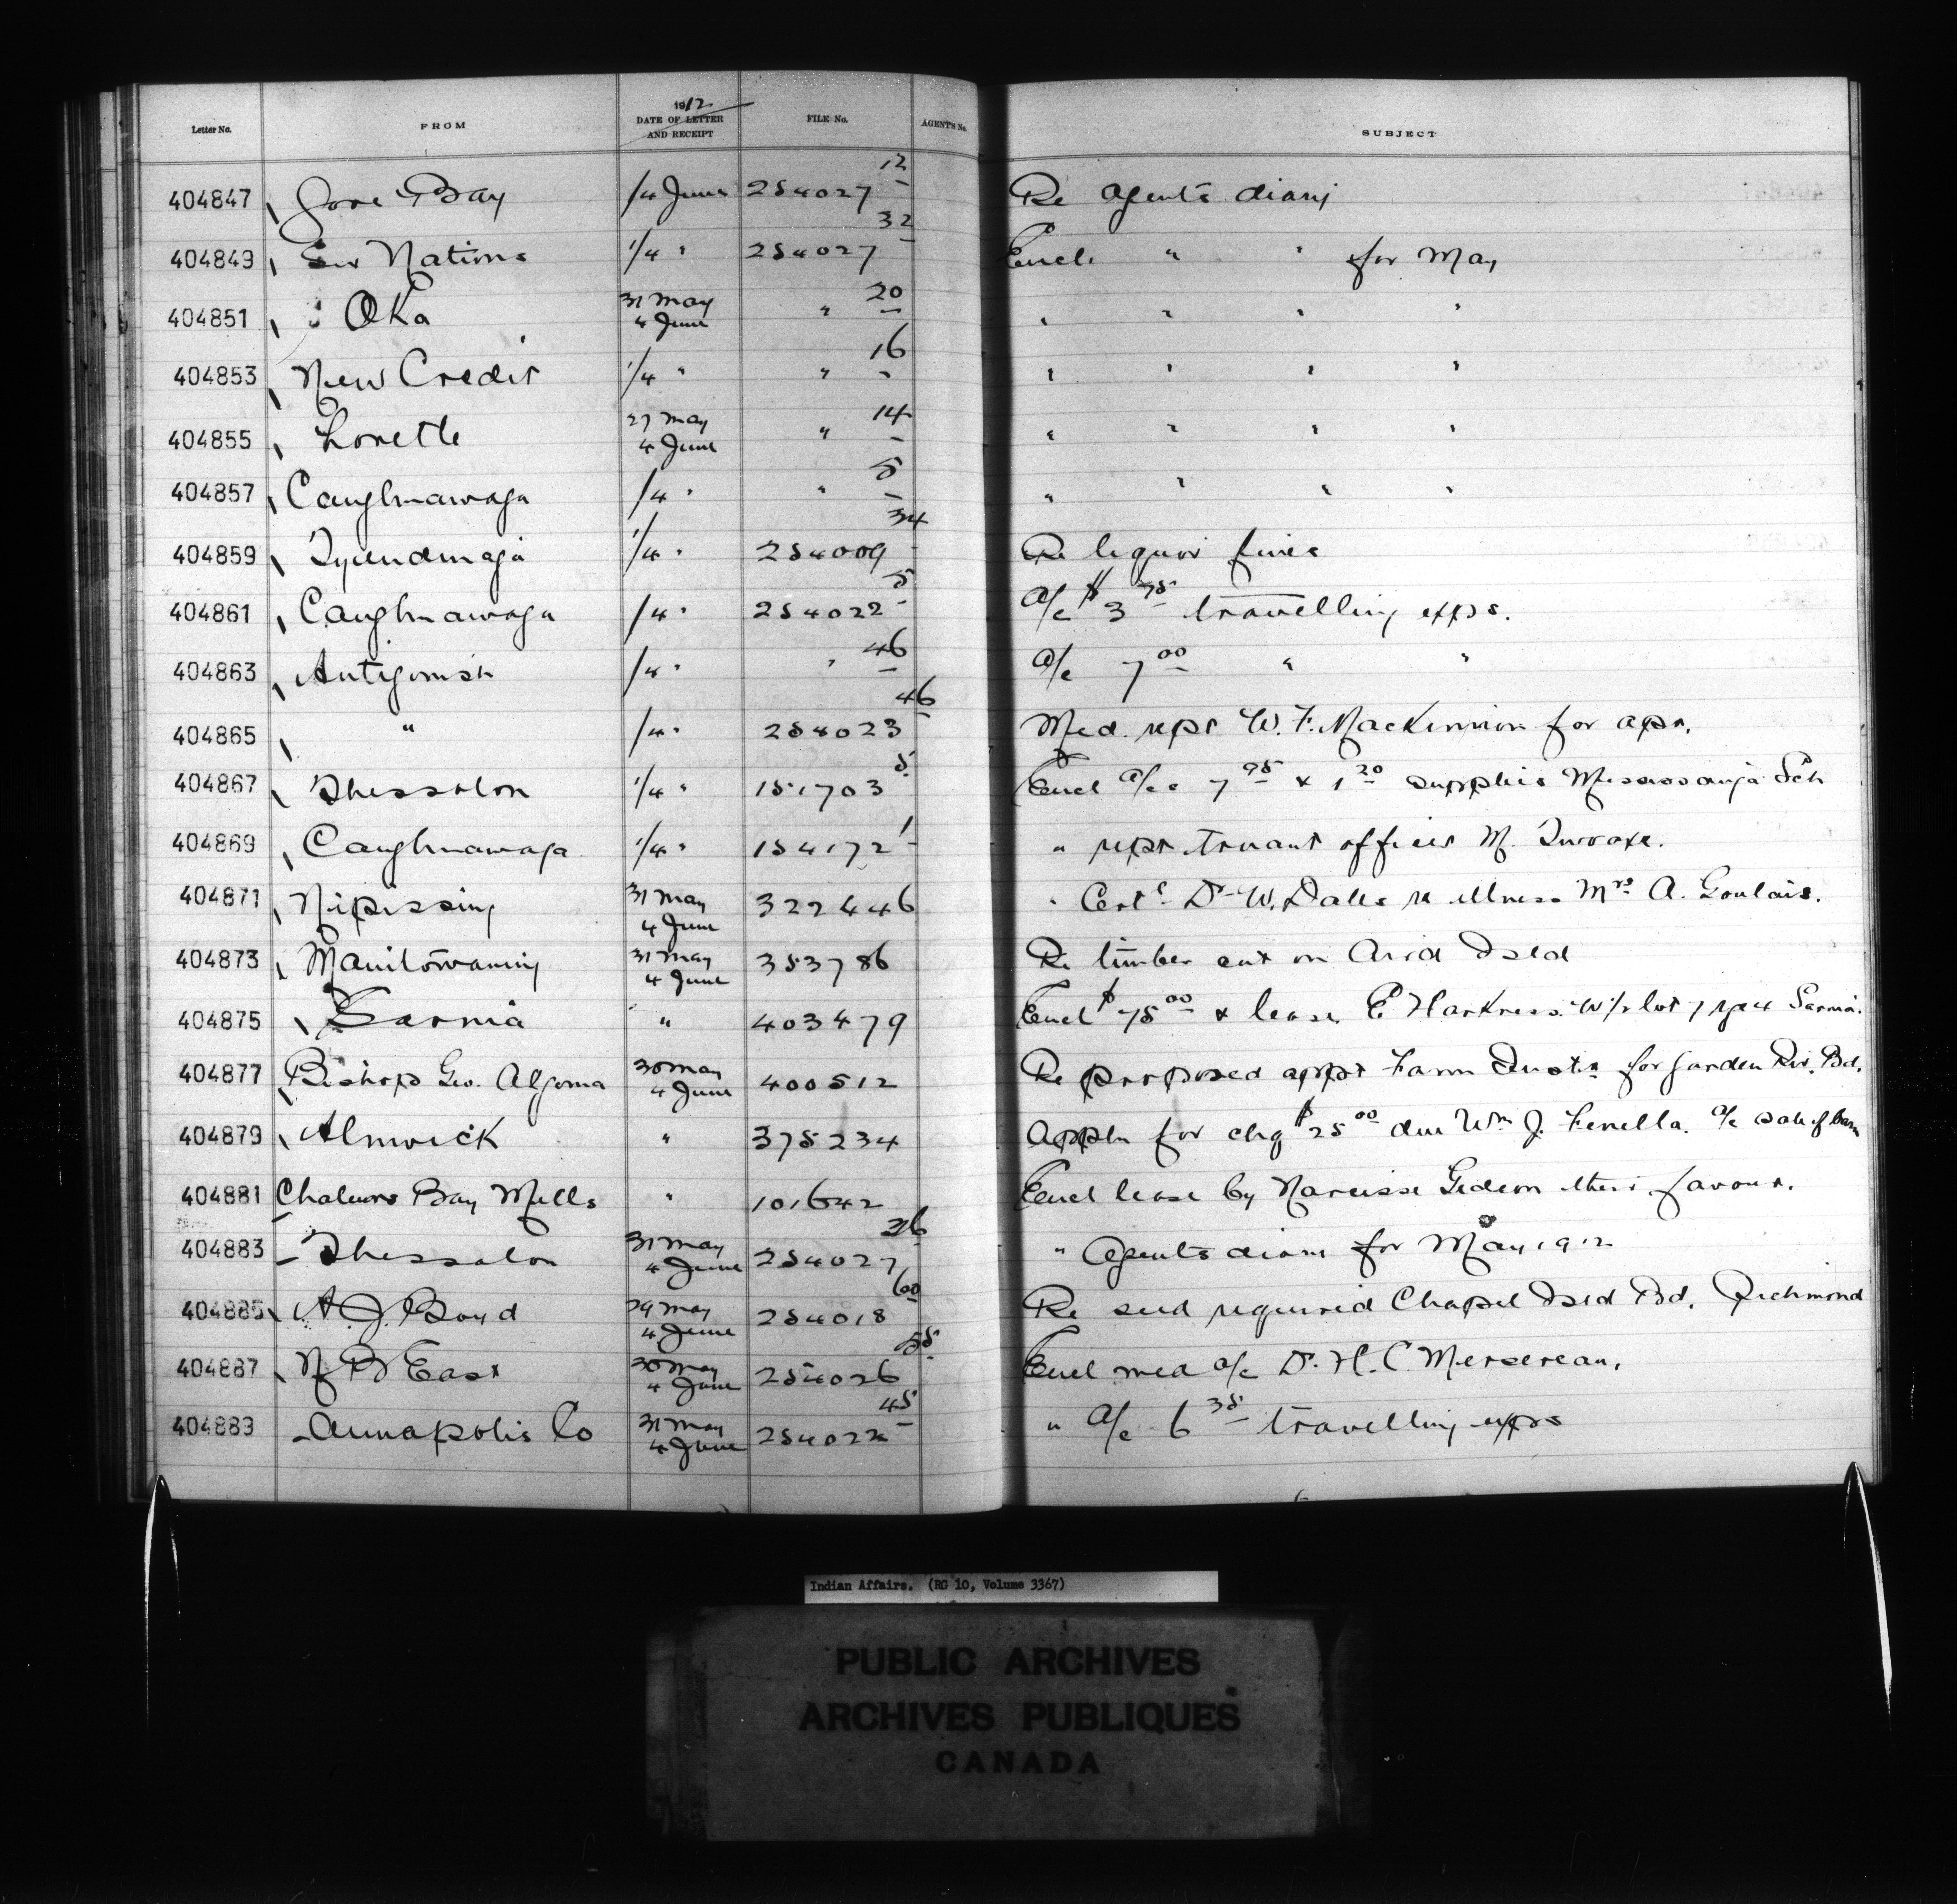 Letter No. FROM 1912 DATE OF LETTER AND RECEIPT FILE No. AGENT'S No. SUBJECT
404847 Gore Bay 1/4 June 254027 12 Re Agents diary
404849 Six Nations 1/4 " 254027 32 Encl. " " for May
404851 Oka 31 May 4 June " 20 " " " "
404853 New Credit 1/4 " " 16 " " " "
404855 Lorette 27 May 4 June " 14 " " " "
404857 Caughnawaga 1/4 " " 5 " " " "
404859 Tyendinaga 1/4 " 254009 34 Re liquor fines
404861 Caughnawaga 1/4 " 254022 5 a/c $3 75 travelling exps.
404863 Antigonish 1/4 " " 46 a/c 7 00 " "
404865 " 1/4 " 254023 46 Med. rept W. F. MacKinnon for apr.
404867 Thessalon 1/4 " 151703 5 Encl a/cs 7 95 & 1 20 supplies Mississauga Sch
404869 Caughnawaga 1/4 " 154172 1 " rept truant officer M.
404871 Nipissing 31 May 4 June 322446 " Cert. Dr W. Dales re illness Mrs A. Goulais.
404873 Manitowaning 31 May 4 June 353786 Re timber cut on Isld
404875 Sarnia " 403479 Encl $75 00 & lease E Harkness W/2 lot 7 rge 4 Sarnia.
404877 Bishop Geo. Algoma 30 May 4 June 400512 Re proposed appt Farm Instr for Garden Riv. Bd.
404879 Alnwick " 375234 Appln for chq $25 00 due Wm J. Fenella. a/c sale of barn
404881 Chaleurs Bay Mills " 101642 Encl lease by Narcisse Gideon their favour.
404883 Thessalon 31 May 4 June 254027 36 " Agents diary for May 1912
404885 A. J. Boyd 29 May 4 June 254018 60 Re seed required Chapel Isld Bd. Richmond
404887 N B East 30 May 4 June 254026 55 Encl med a/c Dr. H. C Mersereau.
404889 Annapolis Co 31 May 4 June 254022 45 " a/c 6 35 travelling exps
Indian Affairs. (RG 10, Volume 3367)
PUBLIC ARCHIVES
ARCHIVES PUBLIQUES
CANADA